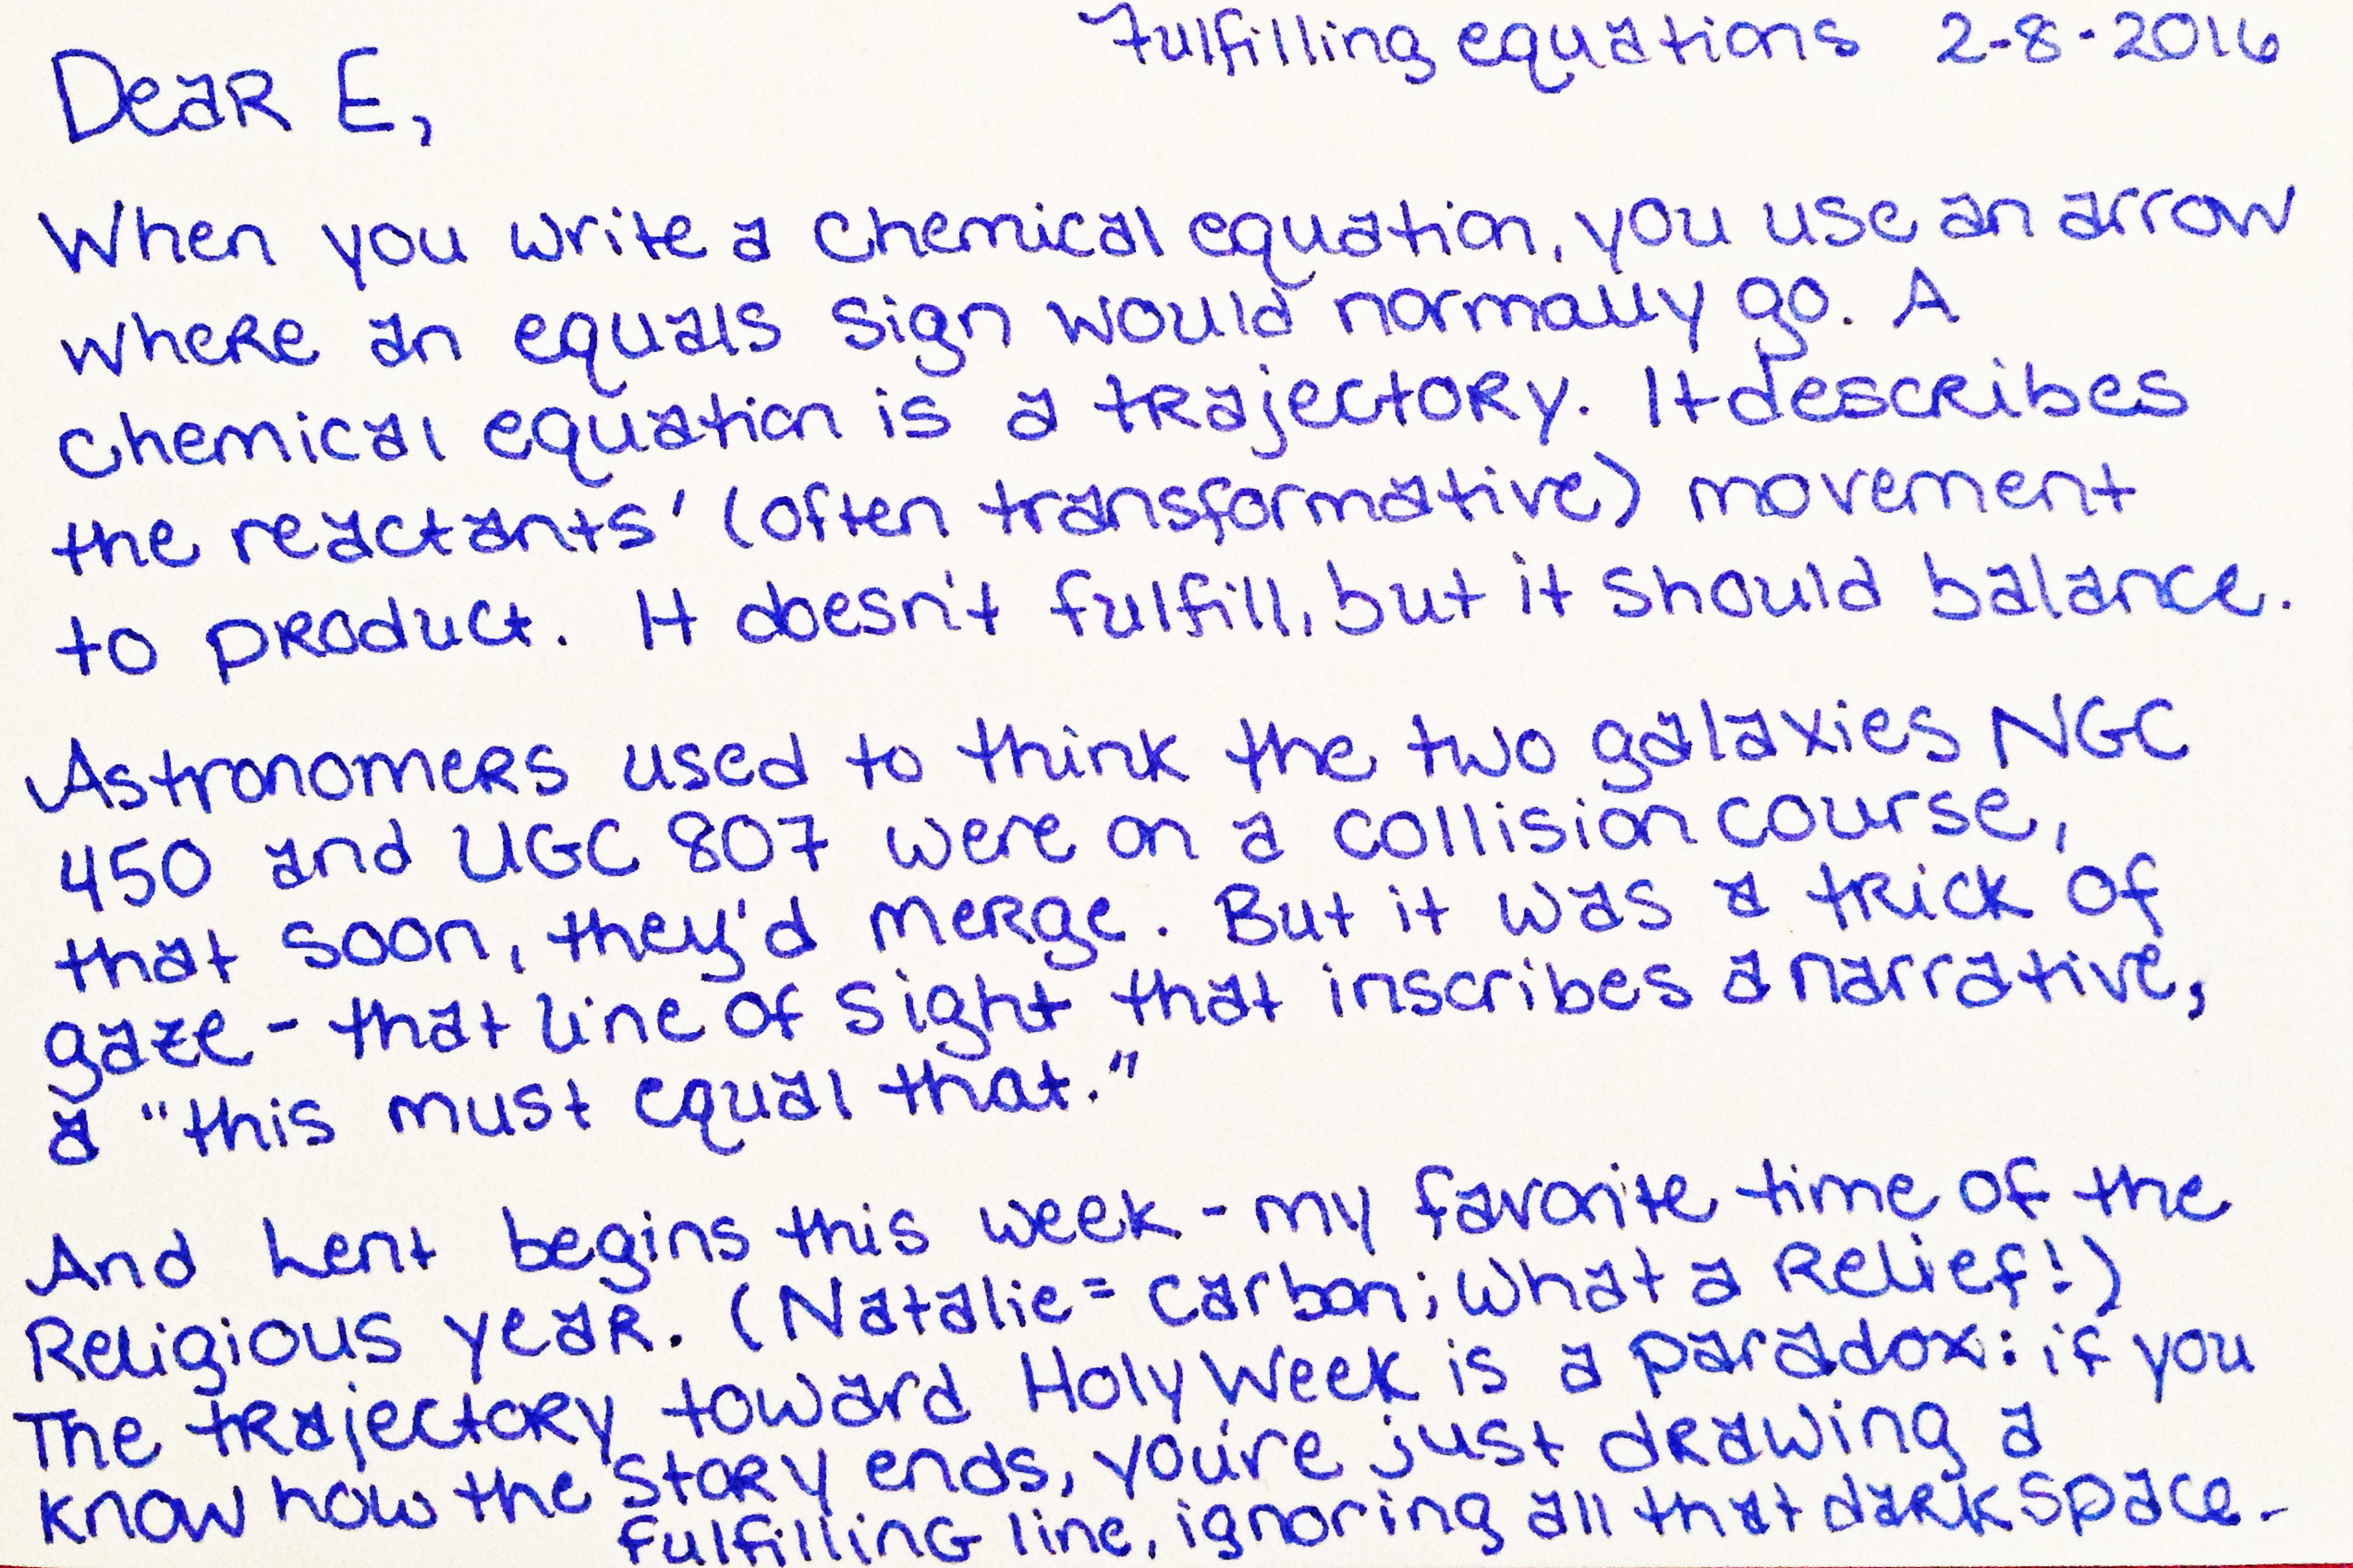 Fulfilling equations 2-8-2016
Dear E,
When you write a chemical equation, you use an arrow
where an equals sign would normally go. A
chemical equation is a trajectory. It describes
the reactants' (often transformative) movement
to product. It doesn't fulfill, but it should balance.
Astronomers used to think the two galaxies NGC
450 and UGC 807 were on a collision course,
that soon, they'd merge. But it was a trick of
gaze - that line of sight that inscribes a narrative,
a "this must equal that."
And Lent begins this week - my favorite time of the
Religious year. (Natalie = carbon; what a relief!)
The trajectory toward Holy Week is a paradox: if you
know how the story ends, you're just drawing a
fulfilling line, ignoring all that dark space.-